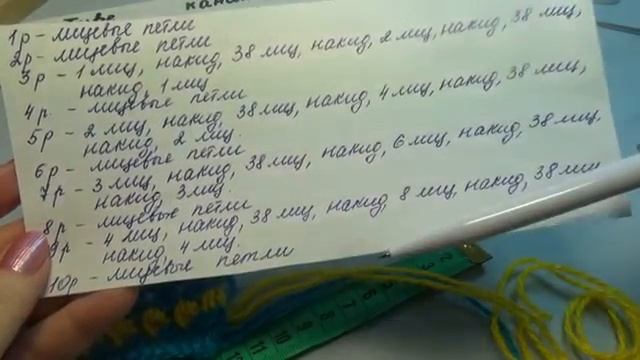 1р - лицевые петли
2р - лицевые петли
3р - 1 лиц, накид, 38 лиц, накид, 2 лиц, накид, 38 лиц,
накид, 1 лиц
4р. - лицевые петли
5р - 2 лиц, накид, 38 лиц, накид, 4 лиц, накид, 38 лиц,
накид, 2 лиц.
6р - лицевые петли
7р - 3 лиц, накид, 38 лиц, накид, 6 лиц, накид, 38 лиц,
накид, 3 лиц.
8р - лицевые петли
9р - 4 лиц, накид, 38 лиц, накид, 8 лиц, накид, 38 лиц
накид, 4 лиц.
10р - лицевые петли
2 3
9 10 11 12